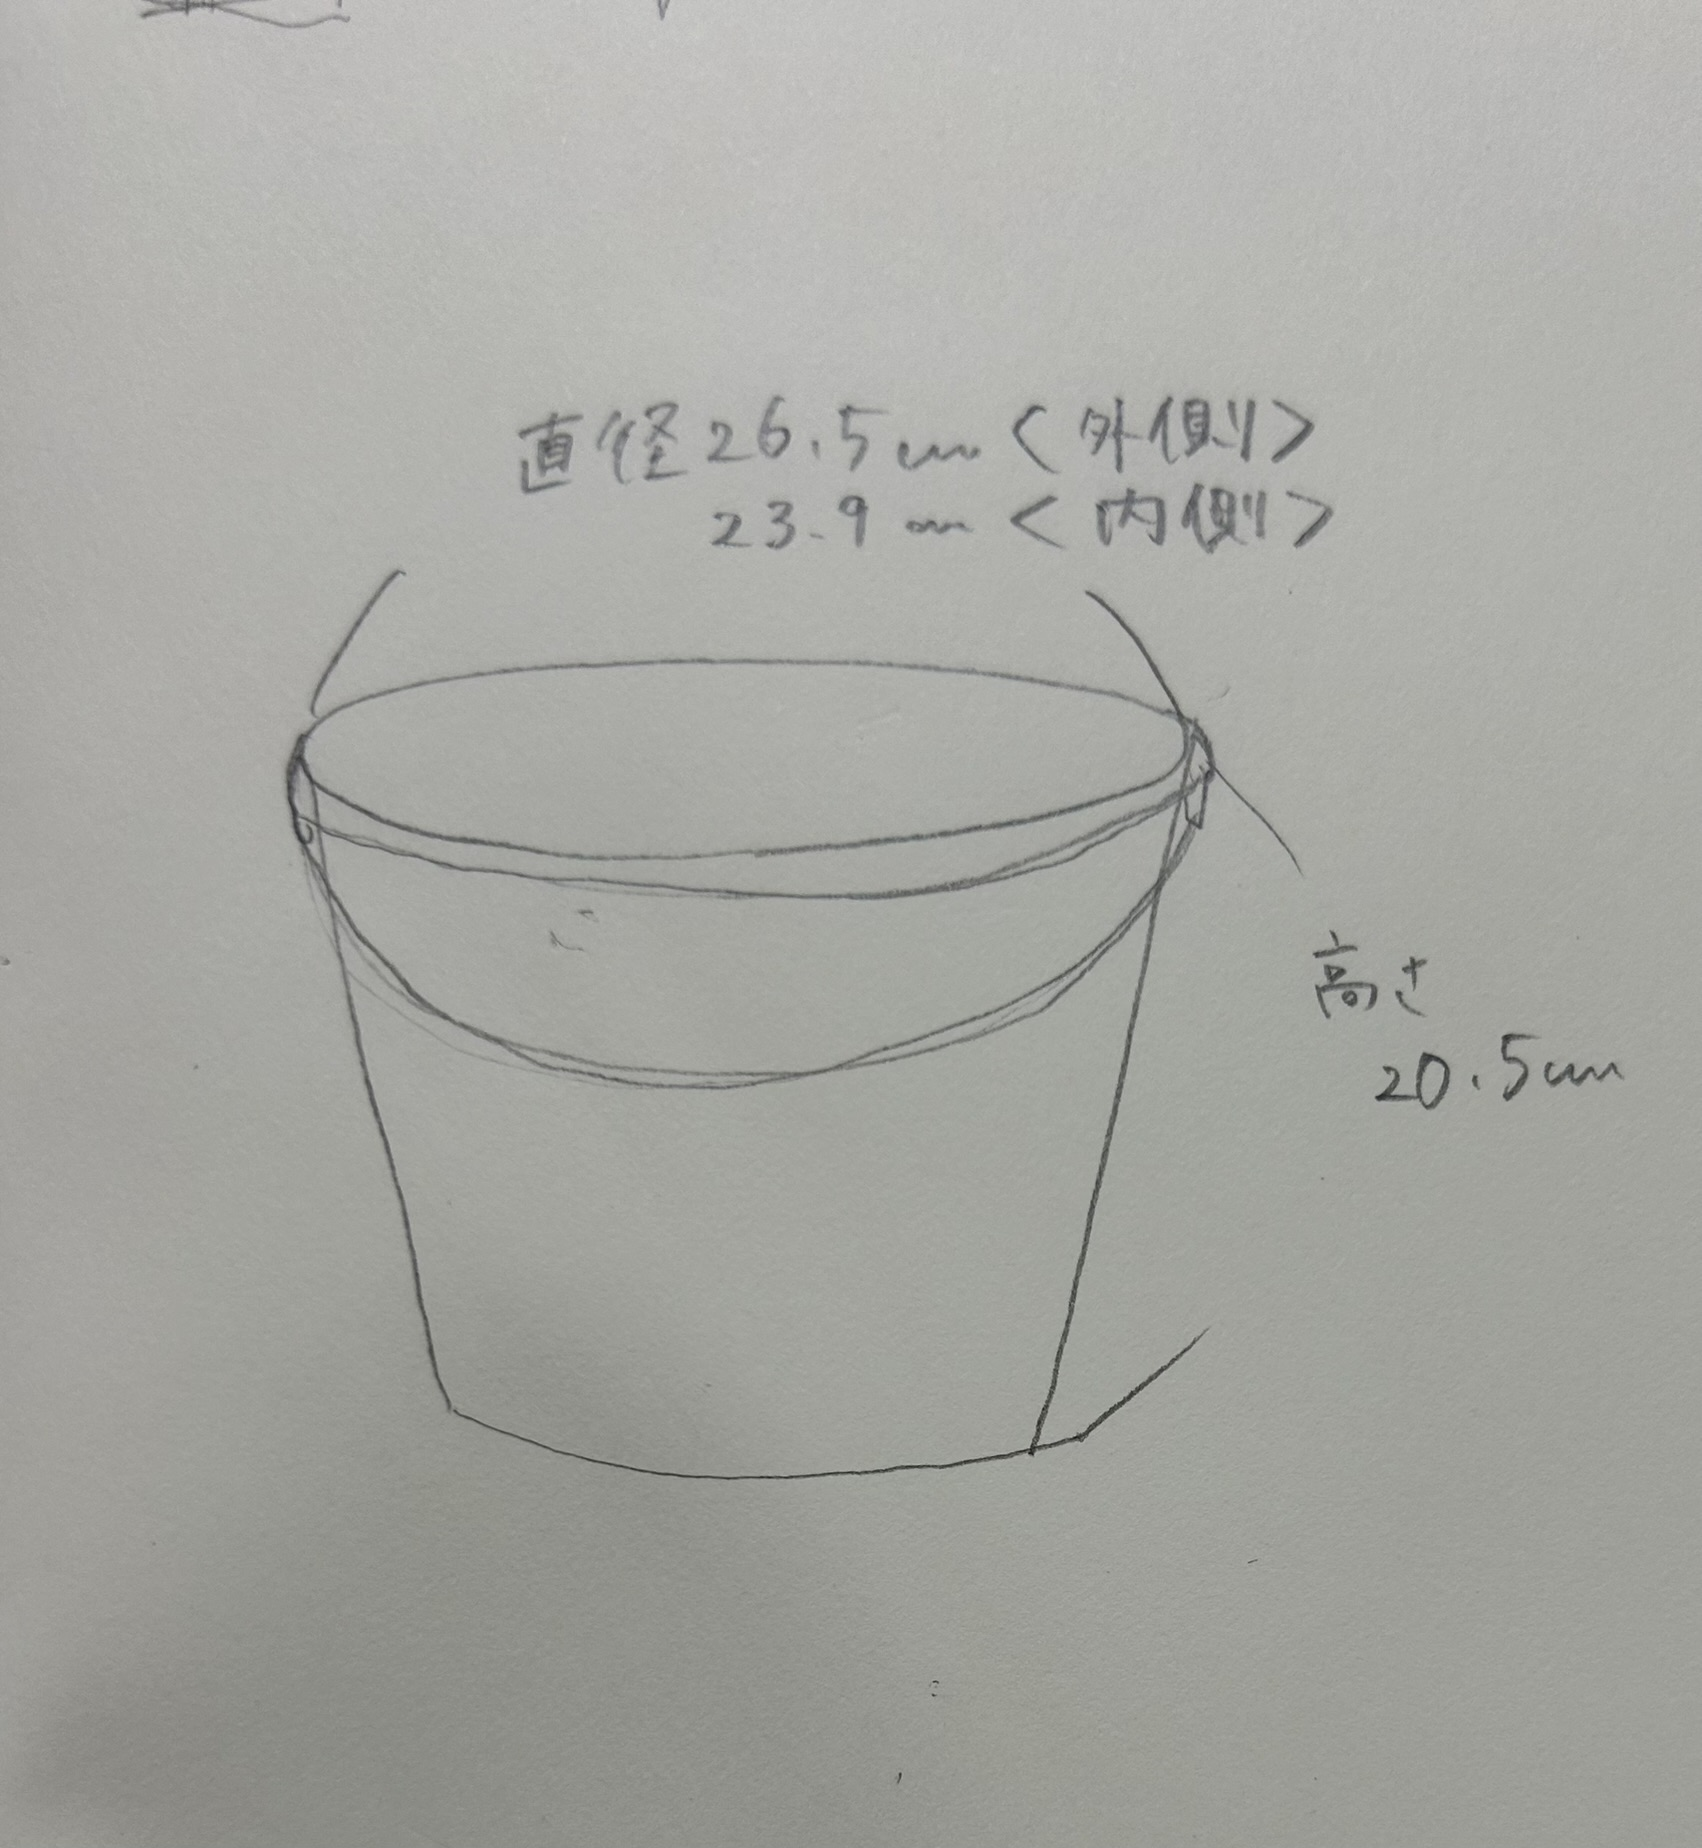 直径 26.5cm <外側>
23.9cm <内側>
高さ
20.5cm